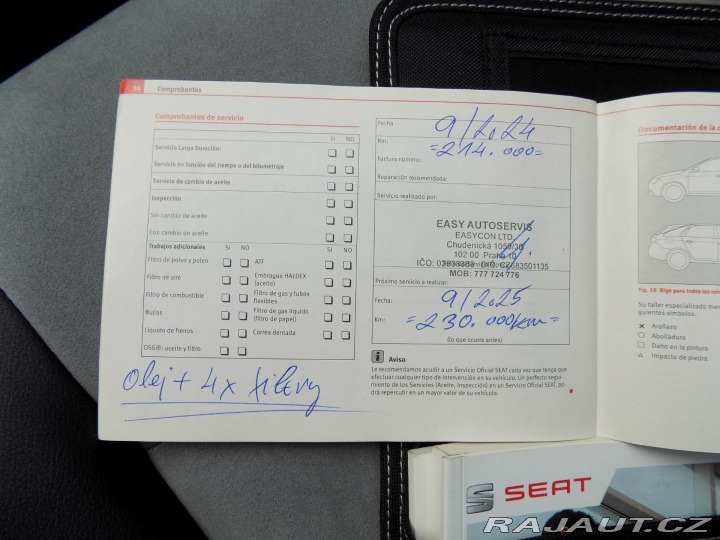 34 Comprobantes
Comprobantes de servicio
SI NO
Servicio Larga Duración:
Servicio en función del tiempo o del kilometraje
Servicio de cambio de aceite
Inspección
Sin cambio de aceite
Con cambio de aceite
Trabajos adicionales SI NO SI NO
Filtro de polvo y polen ATF
Filtro de aire Embrague HALDEX (aceite)
Filtro de combustible Filtro de gas y tubos flexibles
Bujías Filtro de gas líquido (filtro de papel)
Líquido de frenos Correa dentada
DSG®: aceite y filtro
Olej + 4x filtry
Fecha 9/2024
Km: =214.000=
Factura número:
Reparación recomendada:
Servicio realizado por:
EASY AUTOSERVIS
EASYCON LTD.
Chudenická 1059/30
102 00 Praha 10
IČO: DIČ: CZ683501135
MOB: 777 724 776
Próximo servicio a realizar:
Fecha: 9/2025
Km: =230.000km=
(lo que ocurra antes)
i Aviso
Le recomendamos acudir a un Servicio Oficial SEAT cada vez que tenga que
efectuar cualquier tipo de intervención en su vehículo. Un perfecto segui-
miento de los Servicios (Aceite, Inspección) en un Servicio Oficial SEAT, po-
drá repercutir en un mayor valor de su vehículo.
Documentación de la c
Fig. 10 Rige para todos los veh
Su taller especializado mar
guientes símbolos:
× Arañazo
○ Abolladura
□ Daño en la pintura
△ Impacto de piedra
SEAT
RAJAUT.CZ